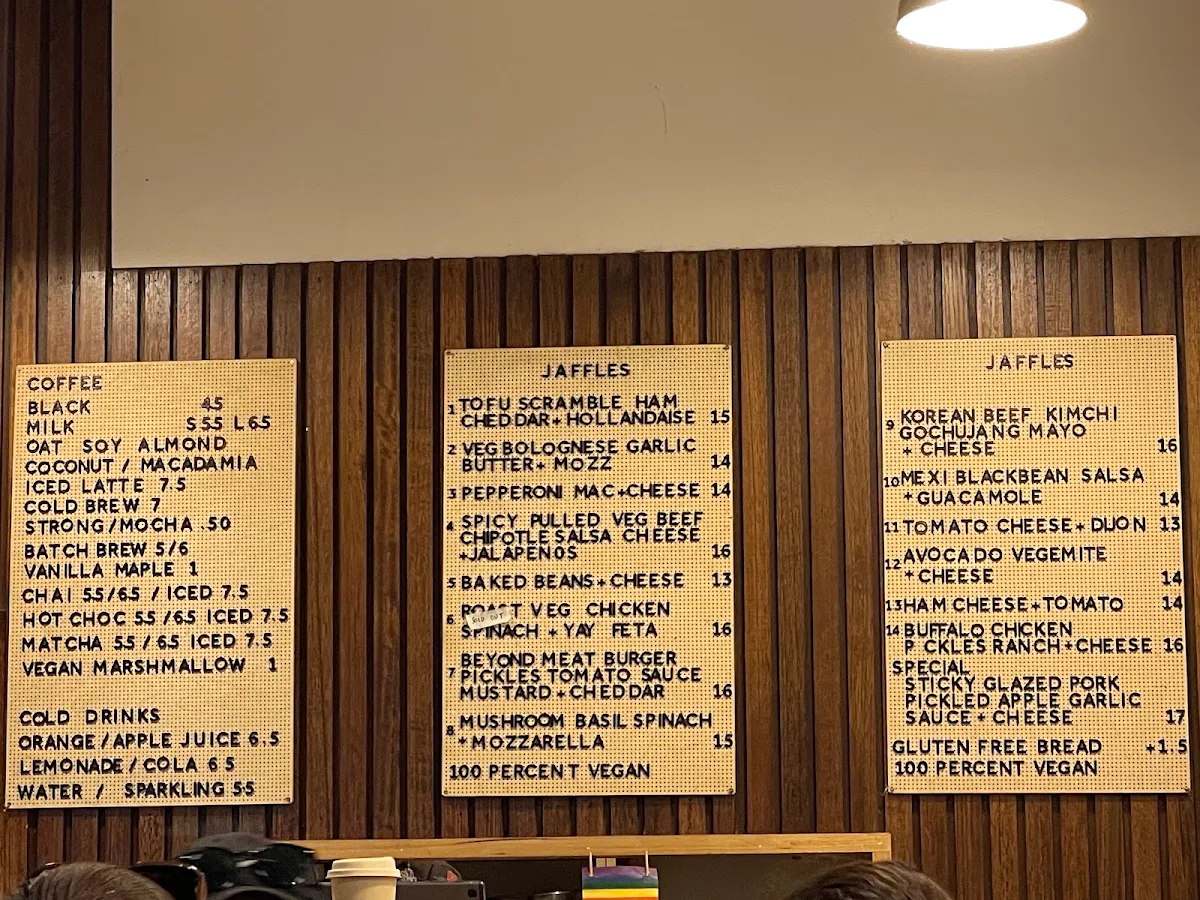 COFFEE
BLACK 4.5
MILK S 5.5 L 6.5
OAT SOY ALMOND
COCONUT / MACADAMIA
ICED LATTE 7.5
COLD BREW 7
STRONG/MOCHA .50
BATCH BREW 5/6
VANILLA MAPLE 1
CHAI 5.5/6.5 / ICED 7.5
HOT CHOC 5.5 /6.5 ICED 7.5
MATCHA 5.5 / 6.5 ICED 7.5
VEGAN MARSHMALLOW 1
COLD DRINKS
ORANGE / APPLE JUICE 6.5
LEMONADE / COLA 6 5
WATER / SPARKLING 5.5
JAFFLES
1 TOFU SCRAMBLE HAM
CHEDDAR+HOLLANDAISE 15
2 VEG BOLOGNESE GARLIC
BUTTER+ MOZZ 14
3 PEPPERONI MAC+CHEESE 14
4 SPICY PULLED VEG BEEF
CHIPOTLE SALSA CHEESE
+JALAPENOS 16
5 BAKED BEANS+CHEESE 13
6 ROAST VEG CHICKEN
SOLD OUT
SPINACH + YAY FETA 16
7 BEYOND MEAT BURGER
PICKLES TOMATO SAUCE
MUSTARD+CHEDDAR 16
8 MUSHROOM BASIL SPINACH
+ MOZZARELLA 15
100 PERCENT VEGAN
JAFFLES
9 KOREAN BEEF KIMCHI
GOCHUJANG MAYO
+ CHEESE 16
10 MEXI BLACKBEAN SALSA
+GUACAMOLE 14
11 TOMATO CHEESE+DIJON 13
12 AVOCADO VEGEMITE
+CHEESE 14
13 HAM CHEESE+TOMATO 14
14 BUFFALO CHICKEN
P CKLES RANCH+CHEESE 16
SPECIAL
STICKY GLAZED PORK
PICKLED APPLE GARLIC
SAUCE + CHEESE 17
GLUTEN FREE BREAD +1.5
100 PERCENT VEGAN